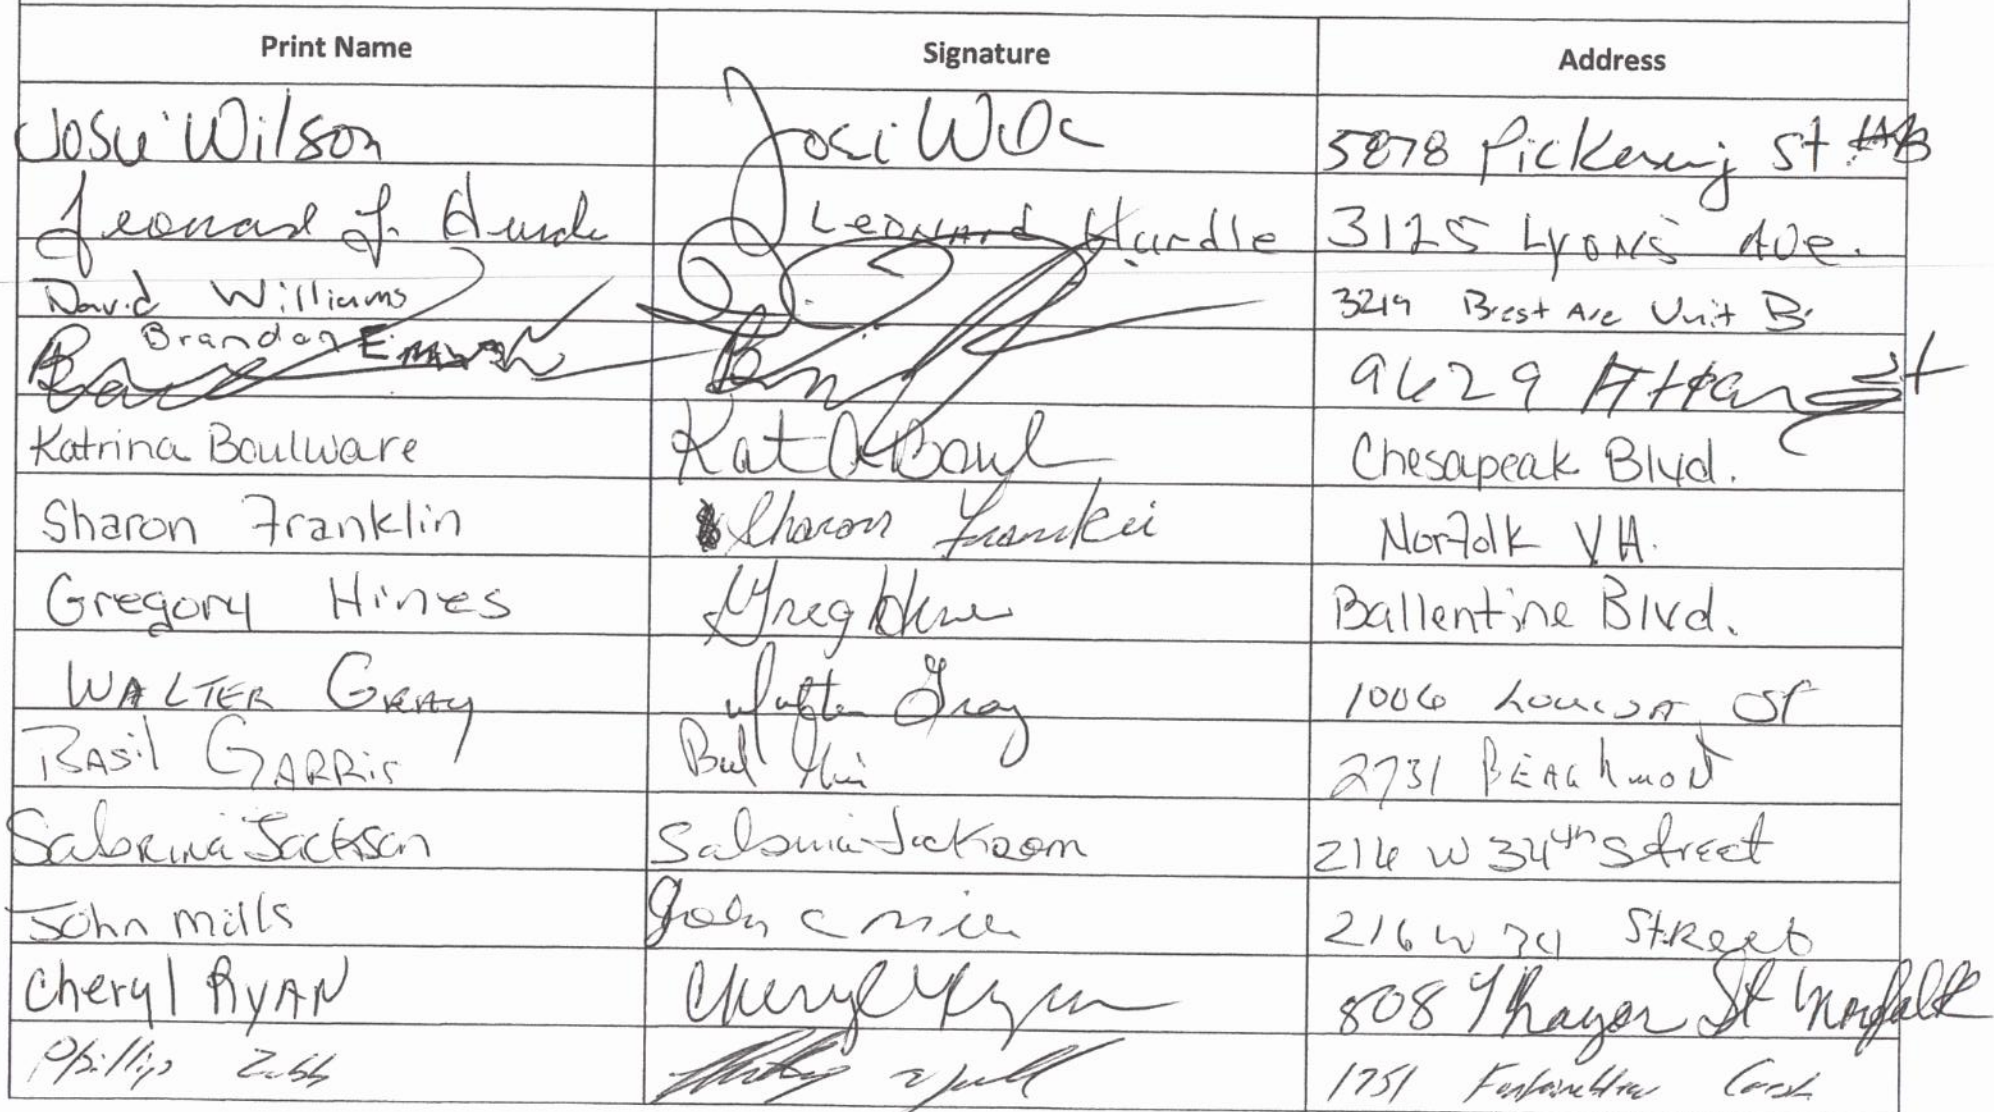 Print Name Signature Address
Josie Wilson Josi 5878 Pickering St #B
Leonard J. Hurdle Leonard Hurdle 3125 Lyons Ave.
David Williams 3219 Brest Ave Unit B
Brandon 9629 St
Katrina Boulware Kat Boul Chesapeak Blvd.
Sharon Franklin Sharon Franklin Norfolk VA.
Gregory Hines Greg Hines Ballentine Blvd.
WALTER GRAY Walter Gray 1006 St
BASil GARRis 2731 BEAChmont
Sabrina Jackson Sabrina Jackson 216 W 34th Street
John mills John C 216 W 34 StReet
Cheryl RyAN Cheryl Ryan 808 Thayor St Norfolk
Phillip 1751